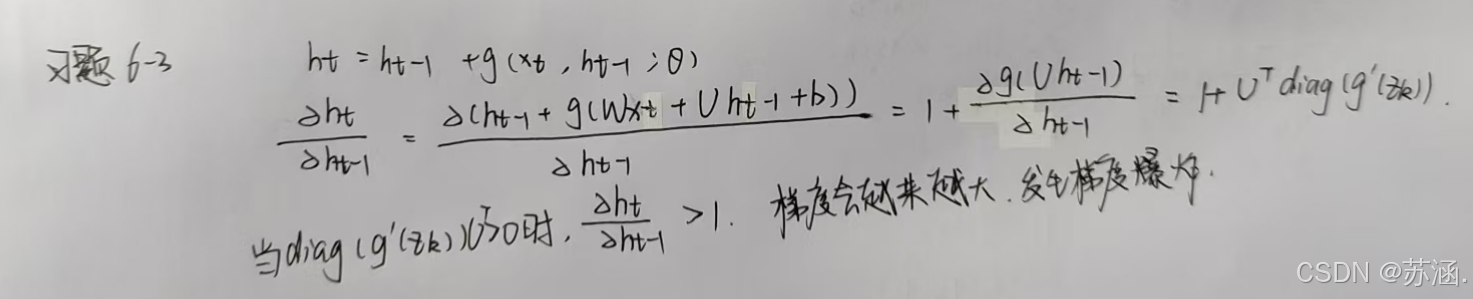 习题 6-3 ht = ht-1 + g(xt, ht-1; θ)
∂ht/∂ht-1 = ∂(ht-1 + g(Wxt + Uht-1 + b))/∂ht-1 = 1 + ∂g(Uht-1)/∂ht-1 = 1 + U^T diag(g'(zk)).
当diag(g'(zk))U^T>0时, ∂ht/∂ht-1 > 1. 梯度会越来越大. 发生梯度爆炸.
CSDN @苏涵.